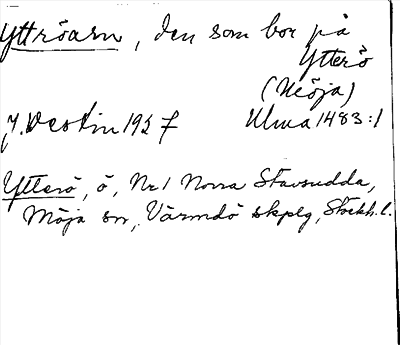 Yttröarn, den som bor på
Ytterö
(Möja)
J. Westin 1927 Ulma 1483:1
Ytterö, ö, Nr 1 Norra Stavsudda,
Möja sn, Värmdö skplg, Stockh.l.